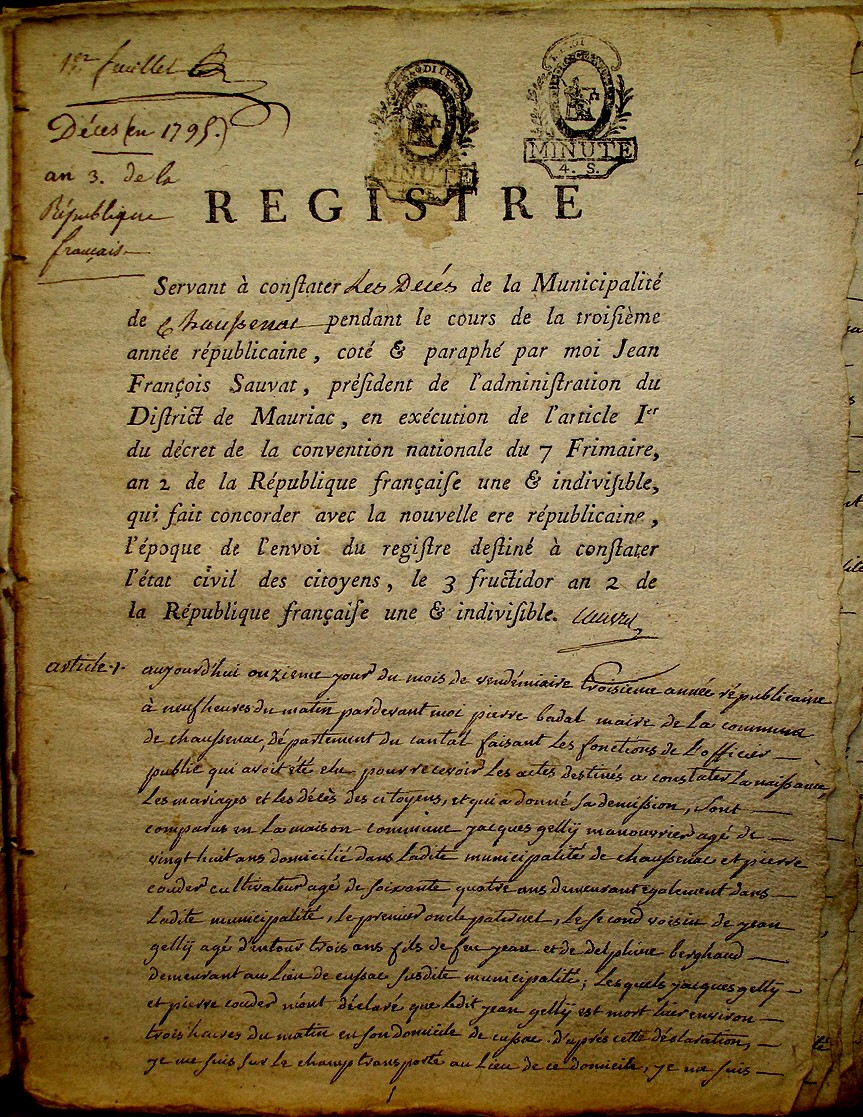 1er feuillet
Décès (en 1795.)
an 3. de la
République
français
MINUTE
MINUTE
4. S.
REGISTRE
Servant à conſtater Les Decés de la Municipalité
de Chaussenac pendant le cours de la troiſième
année républicaine, coté & paraphé par moi Jean
François Sauvat, préſident de l'adminiſtration du
Diſtrict de Mauriac, en exécution de l'article Ier
du décret de la convention nationale du 7 Frimaire,
an 2 de la République françaiſe une & indiviſible,
qui fait concorder avec la nouvelle ere républicaine,
l'époque de l'envoi du regiſtre deſtiné à conſtater
l'état civil des citoyens, le 3 fructidor an 2 de
la République françaiſe une & indiviſible.
article 1. aujourd'hui onzieme jour du mois de vendémiaire troisieme année républicaine
à neuf heures du matin pardevant moi pierre badal maire de la commune
de chaussenac, département du cantal faisant les fonctions de L'officier
public qui avoit été elu pour recevoir Les actes destinés a constater La naissance,
Les mariages et les décès des citoyens, et qui a donné sa demission, sont
comparus en La maison commune jacques gelly manouvrier agé de
vingt huit ans domicilié dans Ladite municipalité de chaussenac et pierre
couder cultivateur agé de soixante quatre ans demeurant egalement dans
Ladite municipalité, Le premier oncle paternel, Le second voisin de jean
gelly agé d'entour trois ans fils de feu jean et de delphine berghaud
demeurant au Lieu de cussac susdite municipalité; Lesquels jacques gelly
et pierre couder m'ont déclaré que Ledit jean gelly est mort hier environ
trois heures du matin en son domicile de cussac. d'après cette déclaration,
je me suis sur Le champ transporté au Lieu de ce domicile, je me suis